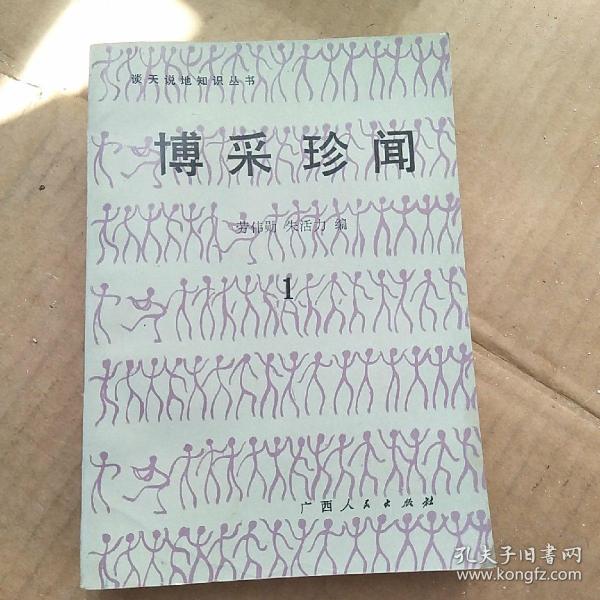 谈天说地知识丛书
博采珍闻
劳伟勋 朱活力 编
1
广西人民出版社
孔夫子旧書网
www.kongfz.com